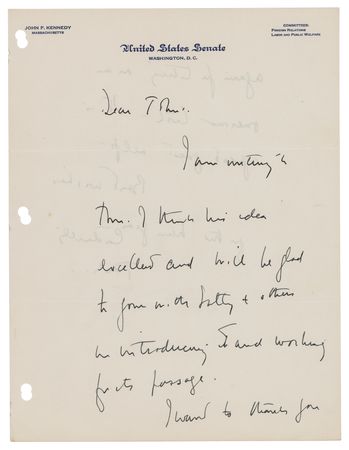 JOHN F. KENNEDY
MASSACHUSETTS
COMMITTEES:
FOREIGN RELATIONS
LABOR AND PUBLIC WELFARE
United States Senate
WASHINGTON, D.C.
Dear
I am writing to
I think his idea
excellent and will be glad
to join with & others
in introducing it and working
for its passage.
I want to thank you